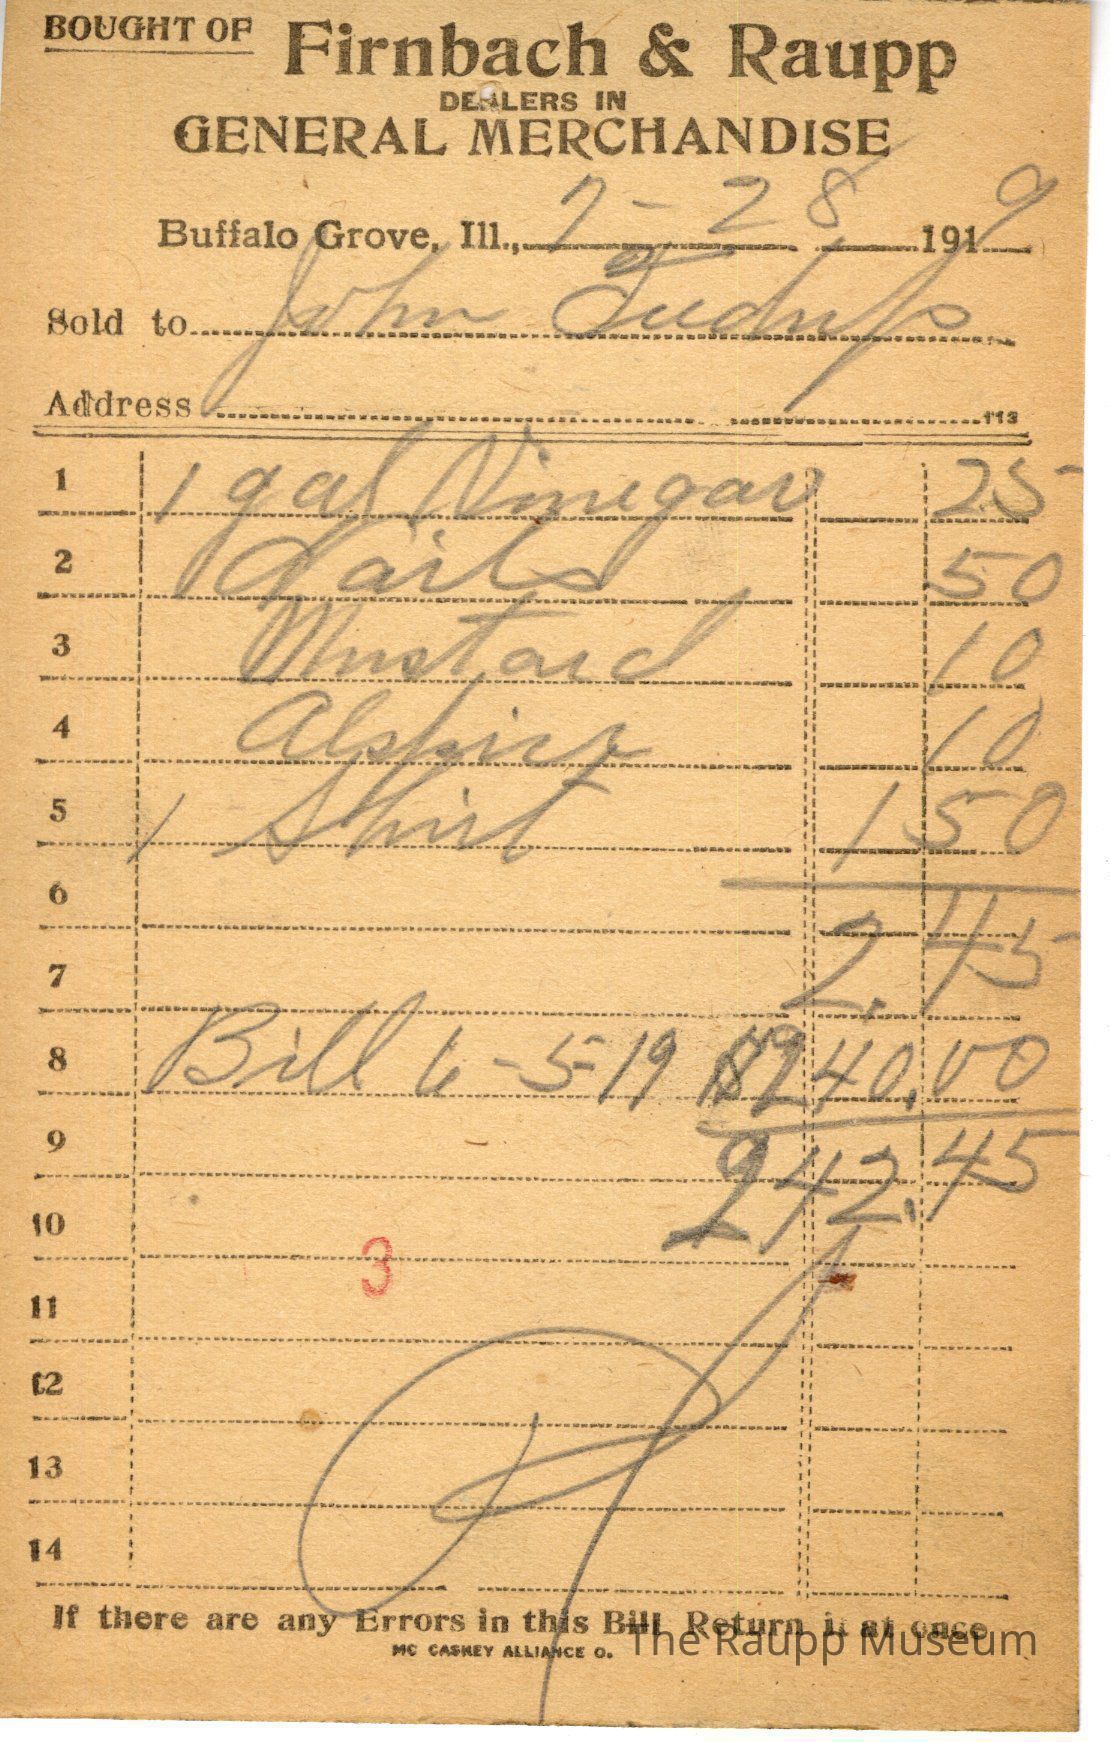 BOUGHT OF Firnbach & Raupp
DEALERS IN
GENERAL MERCHANDISE
Buffalo Grove, Ill., 7-28 1919
Sold to John
Address 113
1 1 gal Vinegar 25
2 50
3 Mustard 10
4 Alspice 10
5 1 Shirt 1 50
6
7 2.45
8 Bill 6-5-19 $240.00
9
10 242.45
3
11
12
13
14
If there are any Errors in this Bill Return it at once
MC CASKEY ALLIANCE O.
The Raupp Museum